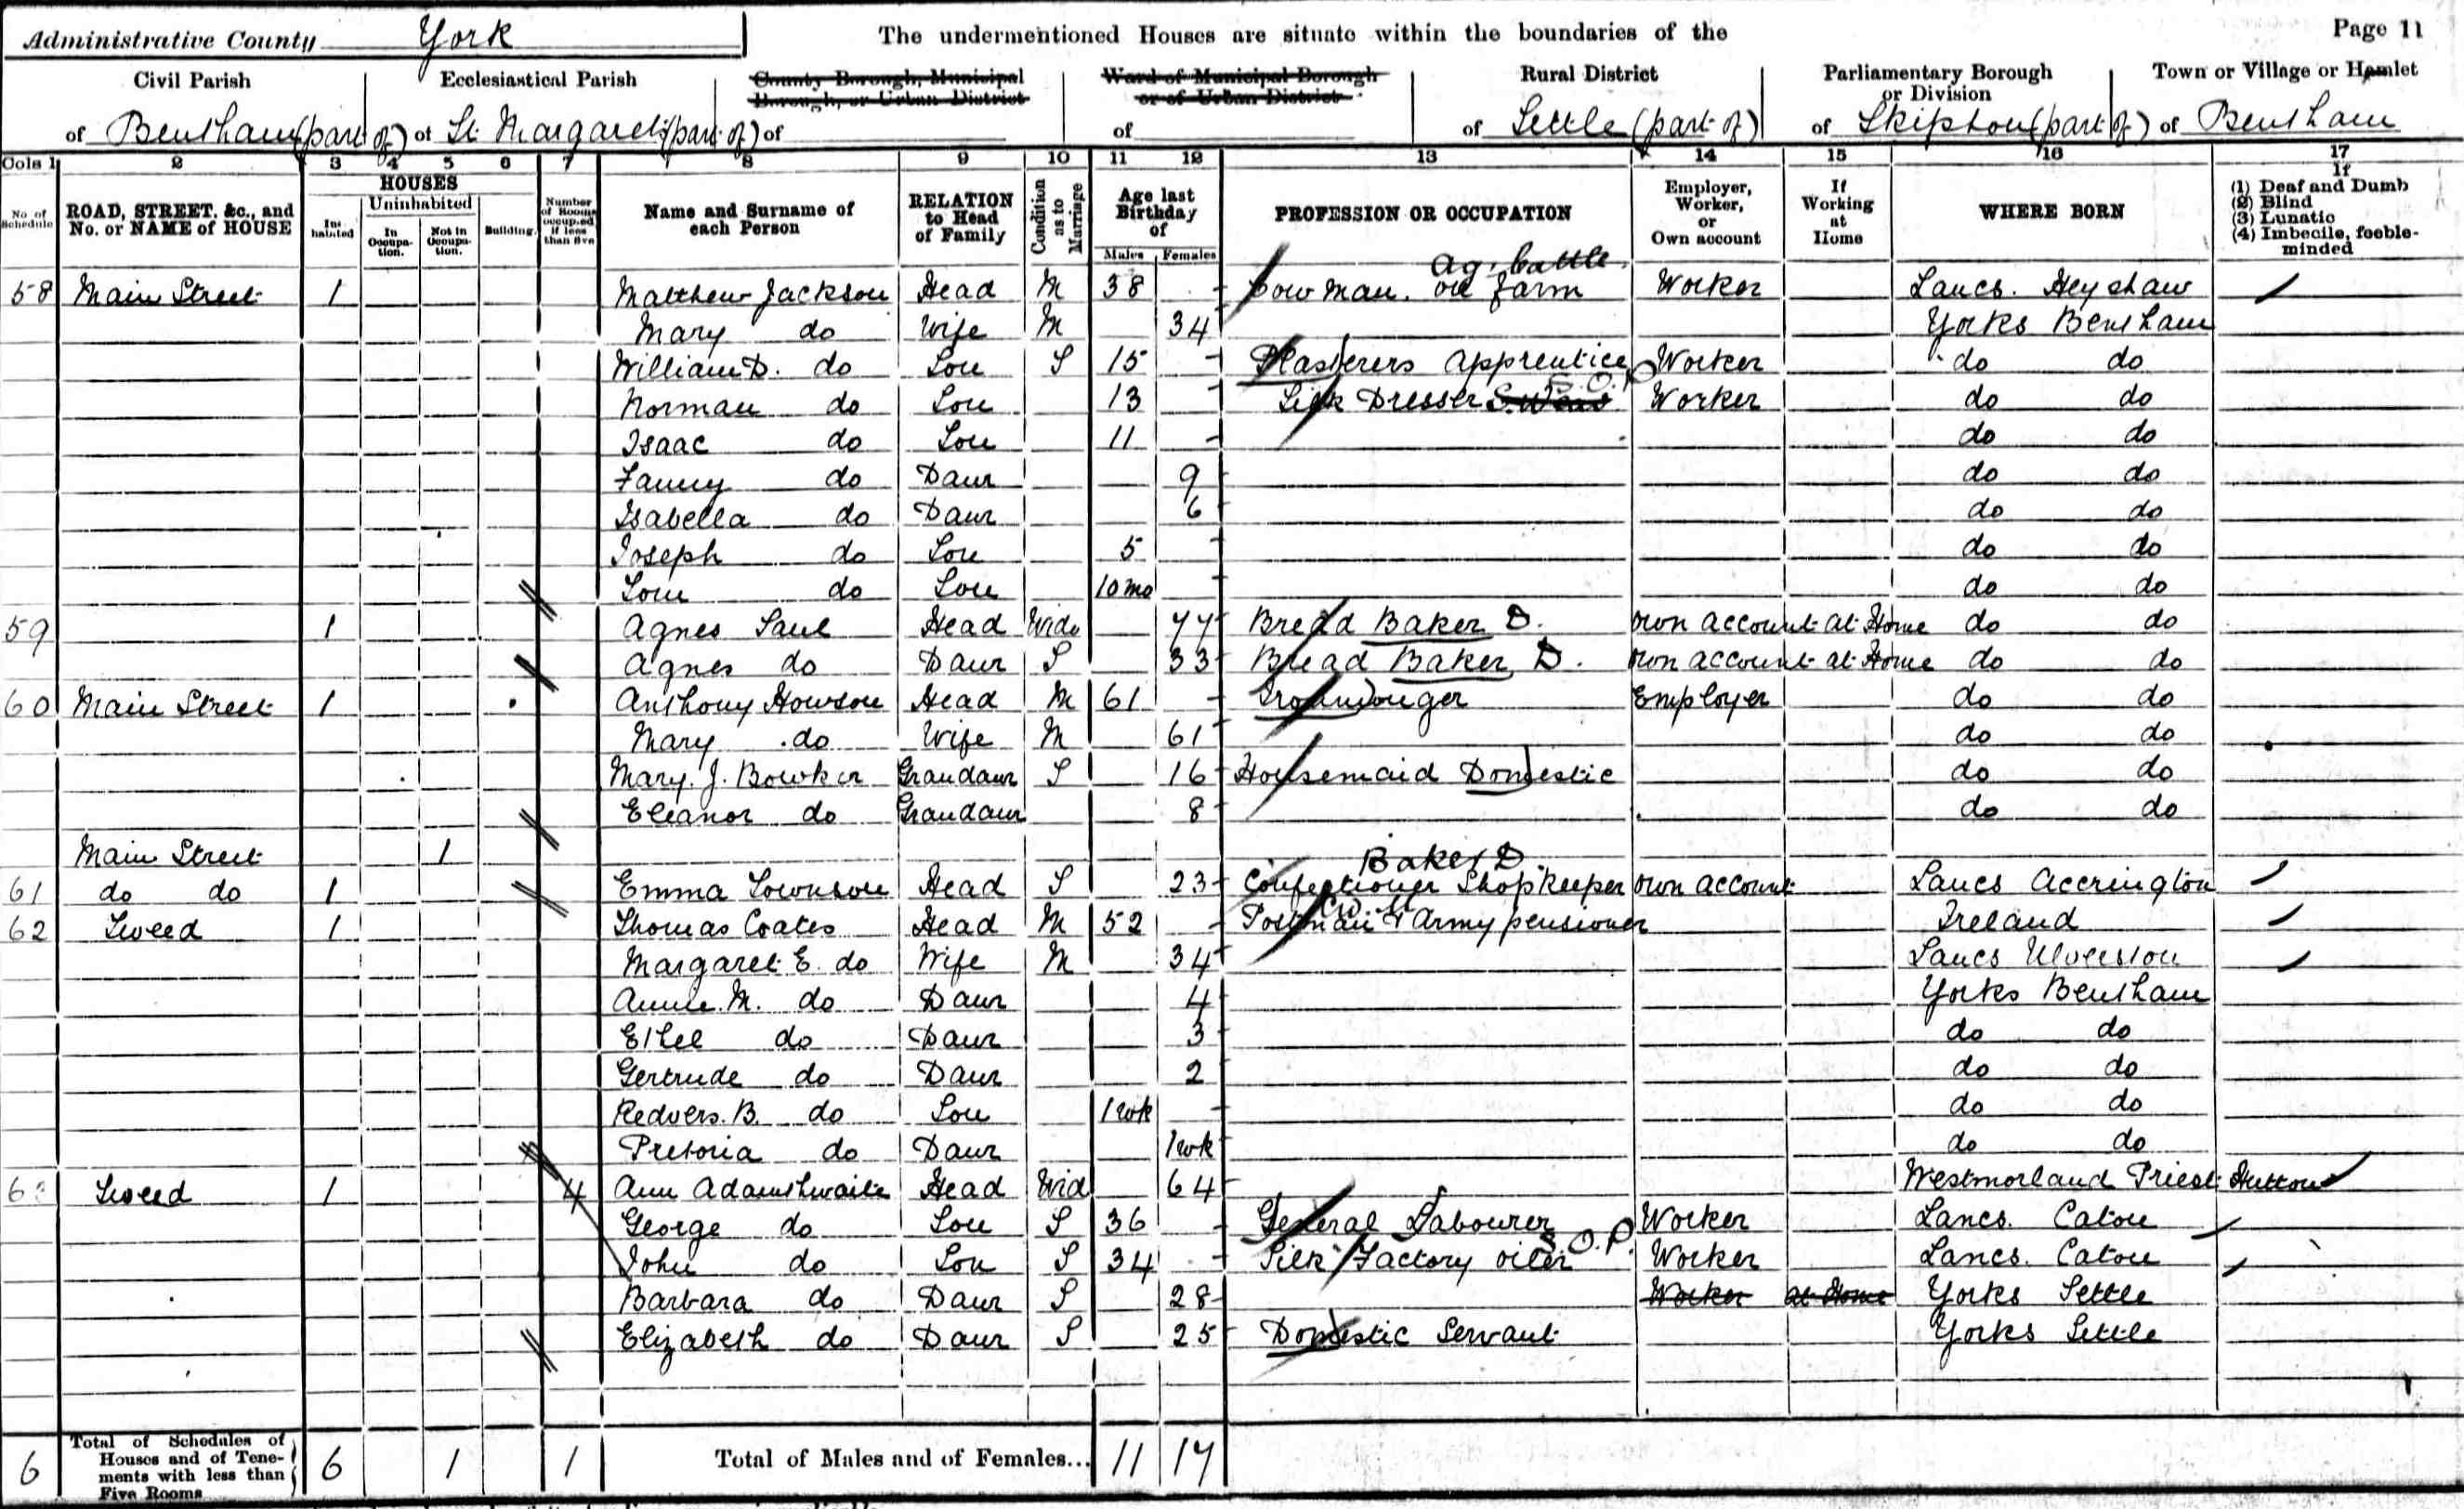 Administrative County York The undermentioned Houses are situate within the boundaries of the Page 11
Civil Parish Ecclesiastical Parish County Borough, Municipal Borough, or Urban District Ward of Municipal Borough or of Urban District Rural District Parliamentary Borough or Division Town or Village or Hamlet
of Bentham (part of) of St. Margarets (part of) of of of Settle (part of) of Skipton (part of) of Bentham
Cols 1 2 3 4 5 6 7 8 9 10 11 12 13 14 15 16 17
No of Schedule ROAD, STREET, &c., and No. or NAME of HOUSE HOUSES Inhabited Uninhabited In Occupation. Not in Occupation. Building. Number of Rooms occupied if less than five Name and Surname of each Person RELATION to Head of Family Condition as to Marriage Age last Birthday of Males Females PROFESSION OR OCCUPATION Employer, Worker, or Own account If Working at Home WHERE BORN If (1) Deaf and Dumb (2) Blind (3) Lunatic (4) Imbecile, feeble-minded
Ag. Cattle
58 Main Street 1 Matthew Jackson Head M 38 Cow man. on farm Worker Lancs. Heysham
Mary do Wife M 34 Yorks Bentham
William D. do Son S 15 Plasterers Apprentice Worker do do
Norman do Son 13 Silk Dresser S.O.P. Worker do do
Isaac do Son 11 do do
Fanny do Daur 9 do do
Isabella do Daur 6 do do
Joseph do Son 5 do do
do Son 10 mo do do
59 1 Agnes Saul Head Wido 77 Bread Baker D. own account at Home do do
Agnes do Daur S 33 Bread Baker D. own account at Home do do
60 Main Street 1 Anthony Howson Head M 61 Ironmonger Employer do do
Mary do Wife M 61 do do
Mary. J. Bowker Grandaur S 16 Housemaid Domestic do do
Eleanor do Grandaur 8 do do
Main Street 1
Baker D.
61 do do 1 Emma Townson Head S 23 Confectioner Shopkeeper own account Lancs Accrington
62 Tweed 1 Thomas Coates Head M 52 Postman & Army pensioner Ireland
Margaret E. do Wife M 34 Lancs Ulverston
Annie. M. do Daur 4 Yorks Bentham
Ethel do Daur 3 do do
Gertrude do Daur 2 do do
Redvers. B. do Son 1 wk do do
Pretoria do Daur 1 wk do do
63 Tweed 1 4 Ann Adamthwaite Head Wid 64 Westmorland Priest Hutton
George do Son S 36 General Labourer Worker Lancs. Caton
John do Son S 34 Silk Factory oiler S.O.P. Worker Lancs. Caton
Barbara do Daur S 28 Worker at Home Yorks Settle
Elizabeth do Daur S 25 Domestic Servant Yorks Settle
6 Total of Schedules of Houses and of Tenements with less than Five Rooms 6 1 1 Total of Males and of Females... 11 17